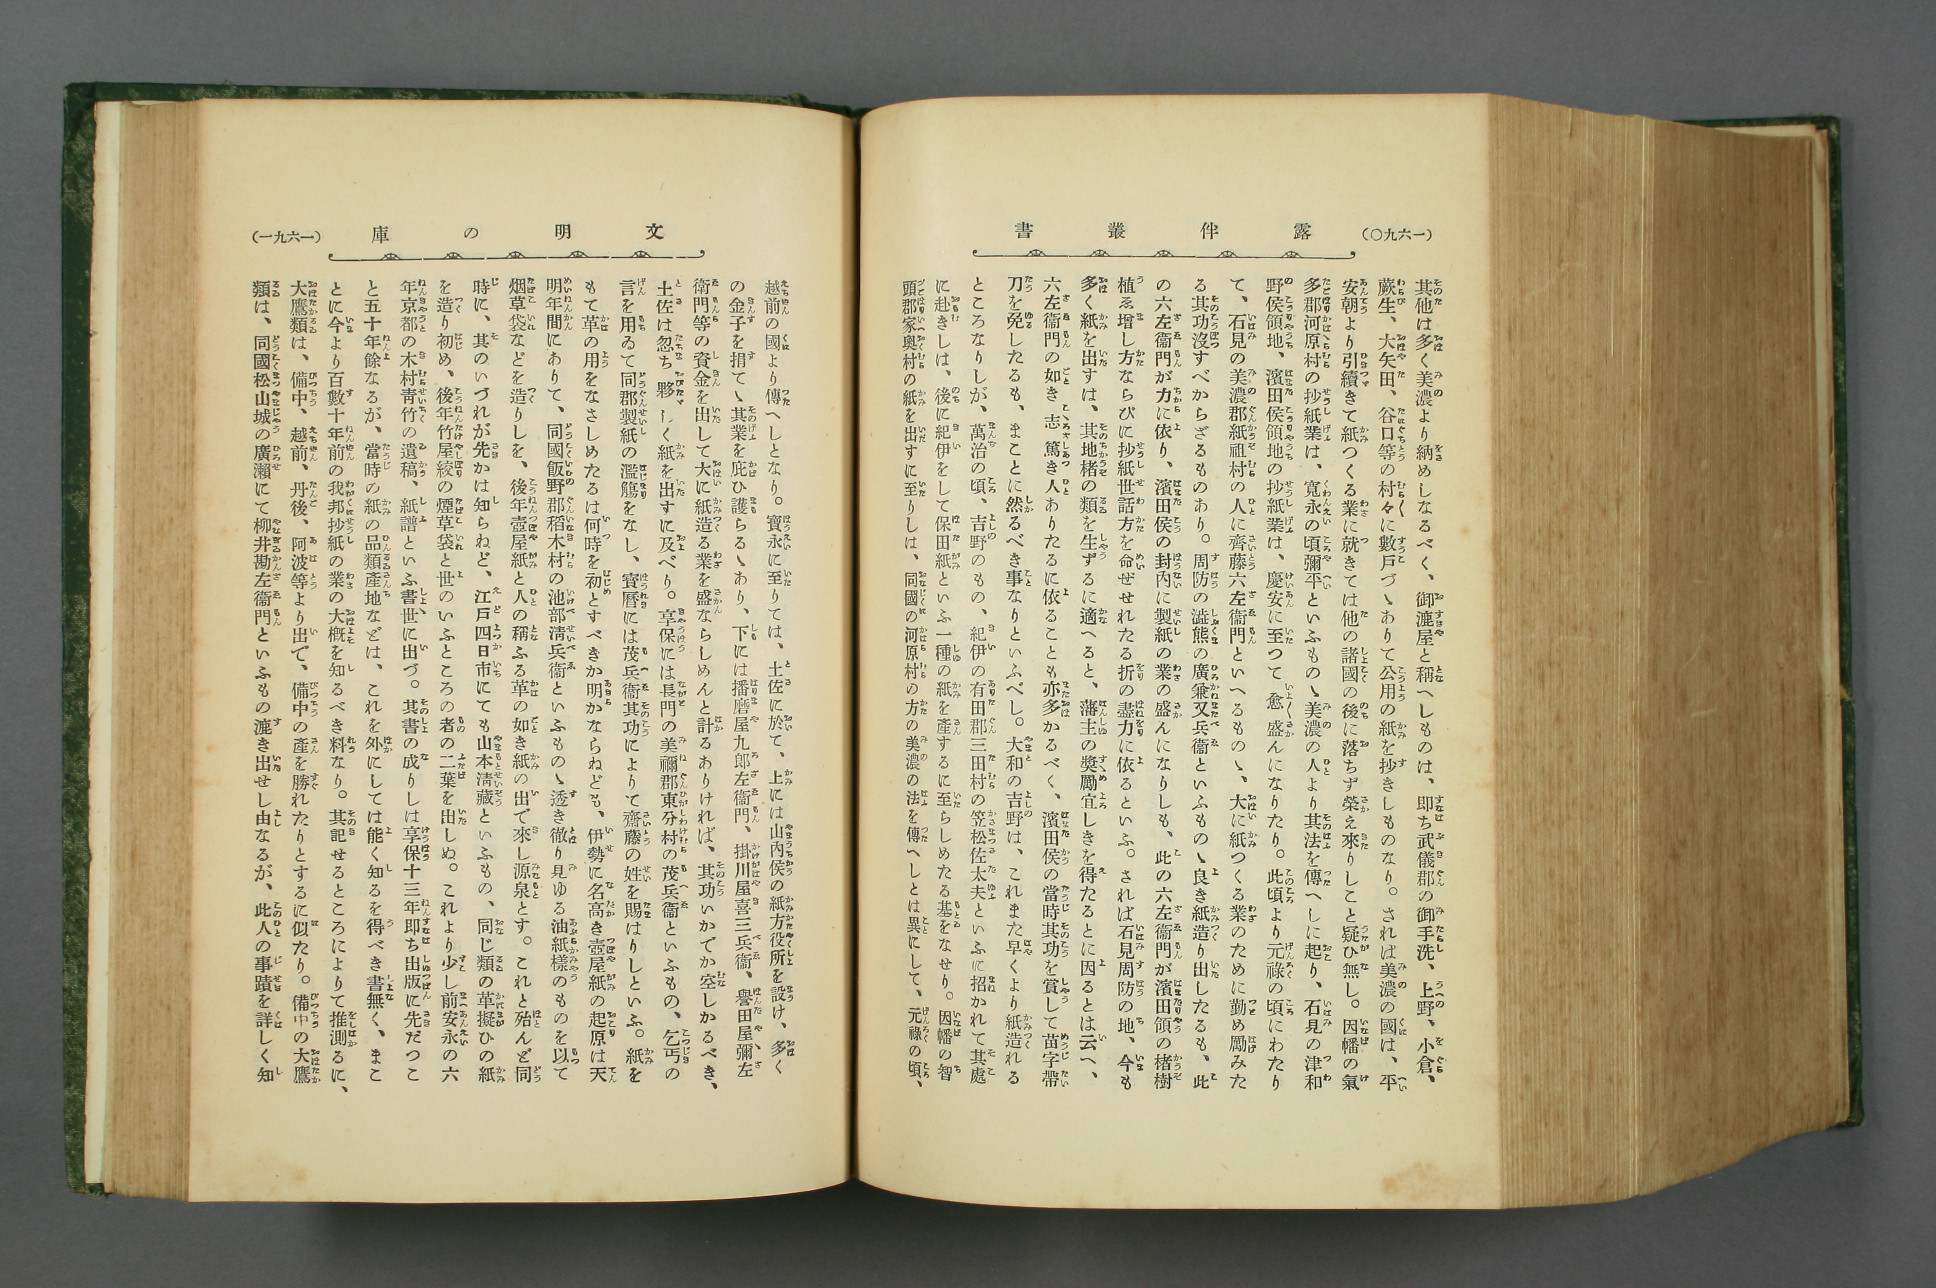 （一六九〇）
露伴叢書
其他は多く美濃より納めしなるべく、御漉屋と稱へしものは、即ち武儀郡の御手洗、上野、小倉、
蕨生、大矢田、谷口等の村々に數戸づゝありて公用の紙を抄きしものなり。されば美濃の國は、平
安朝より引續きて紙つくる業に就きては他の諸國の後に落ちず榮え來りしこと疑ひ無し。因幡の氣
多郡河原村の抄紙業は、寛永の頃彌平といふもの、美濃の人より其法を傳へしに起り、石見の津和
野侯領地、濱田侯領地の抄紙業は、慶安に至つて愈盛んになりたり。此頃より元祿の頃にわたり
て、石見の美濃郡紙祖村の人に齊藤六左衞門といへるもの、大に紙つくる業のために勤め勵みた
る其功沒すべからざるものあり。周防の澁熊の廣兼又兵衞といふもの、良き紙造り出したるも、此
の六左衞門が力に依り、濱田侯の封內に製紙の業の盛んになりしも、此の六左衞門が濱田領の楮樹
植ゑ增し方ならびに抄紙世話方を命ぜせれたる折の盡力に依るといふ。されば石見周防の地、今も
多く紙を出すは、其地楮の類を生ずるに適へると、藩主の奬勵宜しきを得たるとに因るとは云へ、
六左衞門の如き志篤き人ありたるに依ることも亦多かるべく、濱田侯の當時其功を賞して苗字帶
刀を免したるも、まことに然るべき事なりといふべし。大和の吉野は、これまた早くより紙造れる
ところなりしが、萬治の頃、吉野のもの、紀伊の有田郡三田村の笠松佐太夫といふに招かれて其處
に赴きしは、後に紀伊をして保田紙といふ一種の紙を產するに至らしめたる基をなせり。因幡の智
頭郡家奧村の紙を出すに至りしは、同國の河原村の方の美濃の法を傳へしとは異にして、元祿の頃、
文明の庫
（一六九一）
越前の國より傳へしとなり。寶永に至りては、土佐に於て、上には山內侯の紙方役所を設け、多く
の金子を捐てゝ其業を庇ひ護らるゝあり、下には播磨屋九郎左衞門、掛川屋喜三兵衞、譽田屋彌左
衞門等の資金を出して大に紙造る業を盛ならしめんと計るありければ、其功いかでか空しかるべき、
土佐は忽ち夥しく紙を出すに及べり。享保には長門の美禰郡東分村の茂兵衞といふもの、乞丐の
言を用ゐて同郡製紙の濫觴をなし、寶曆には茂兵衞其功によりて齋藤の姓を賜はりしといふ。紙を
もて革の用をなさしめたるは何時を初とすべきか明かならねども、伊勢に名高き壺屋紙の起原は天
明年間にありて、同國飯野郡稻木村の池部淸兵衞といふもの、透き徹り見ゆる油紙樣のものを以て
烟草袋などを造りしを、後年壺屋紙と人の稱ふる革の如き紙の出で來し源泉とす。これと殆んど同
時に、其のいづれが先かは知らねど、江戸四日市にても山本淸藏といふもの、同じ類の革擬ひの紙
を造り初め、後年竹屋絞の煙草袋と世のいふところの者の二葉を出しぬ。これより少し前安永の六
年京都の木村靑竹の遺稿、紙譜といふ書世に出づ。其書の成りしは享保十三年即ち出版に先だつこ
と五十年餘なるが、當時の紙の品類產地などは、これを外にしては能く知るを得べき書無く、まこ
とに今より百數十年前の我邦抄紙の業の大概を知るべき料なり。其記せるところによりて推測るに、
大鷹類は、備中、越前、丹後、阿波等より出で、備中の產を勝れたりとするに似たり。備中の大鷹
類は、同國松山城の廣瀨にて柳井勘左衞門といふもの漉き出せし由なるが、此人の事蹟を詳しく知